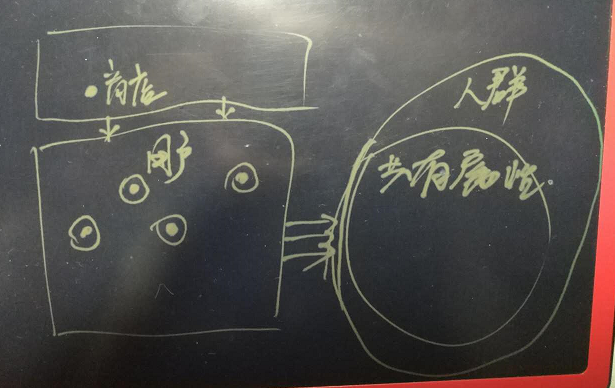 商店
用户
人群
共有属性.